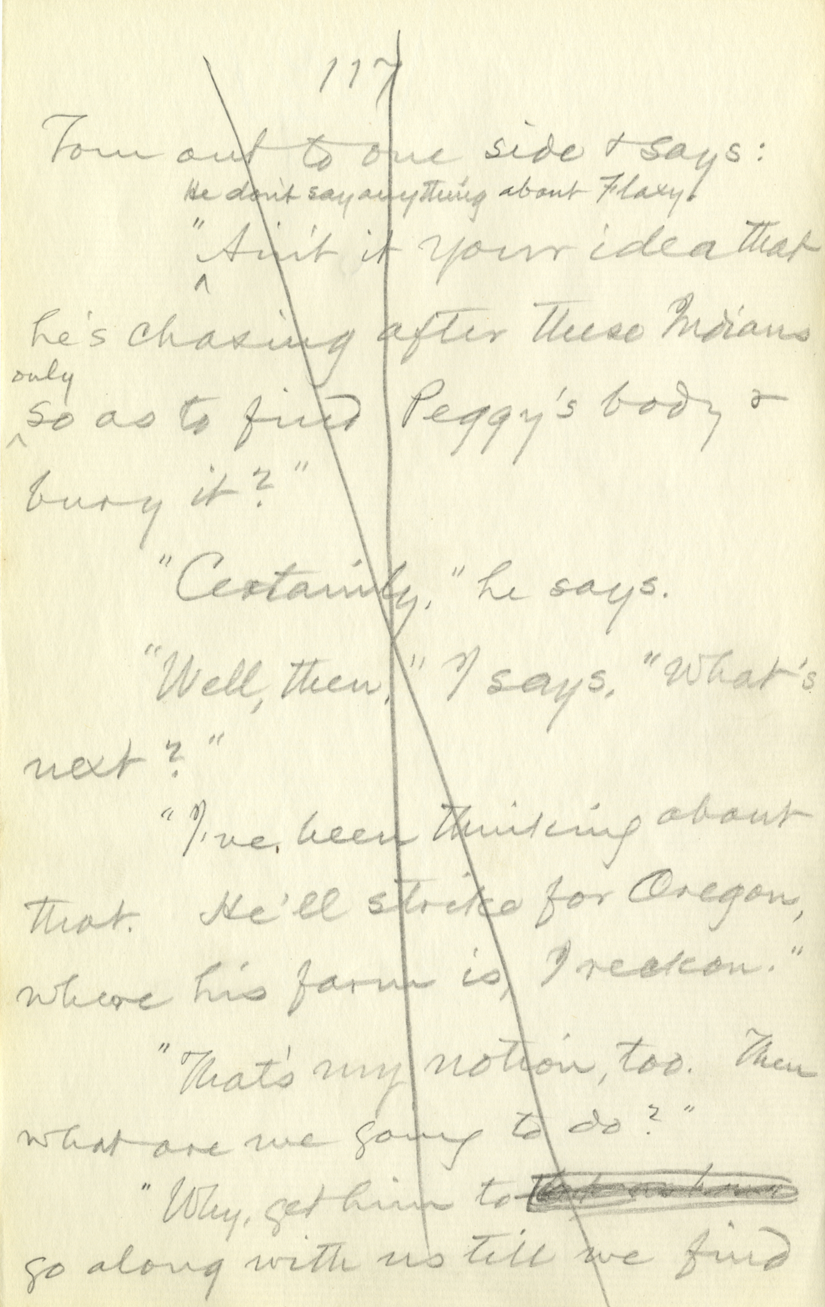 117
Tom out to one side & says:
He don't say anything about Flaxy.
"Ain't it your idea that
he's chasing after these Indians
only
so as to find Peggy's body &
bury it?"
"Certainly," he says.
"Well, then," I says, "What's
next?"
"I've been thinking about
that. He'll strike for Oregon,
where his farm is, I reckon."
"That's my notion, too. Then
what are we going to do?"
"Why, get him to
go along with us till we find